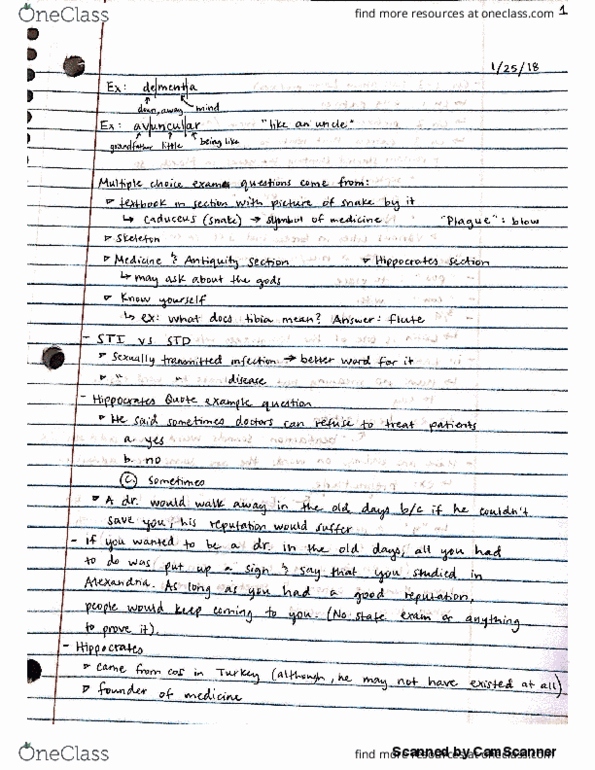 OneClass
find more resources at oneclass.com
1
1/25/18
Ex: de|ment|a
down, away mind
Ex: av|uncul|ar "like an uncle"
grandfather little being like
Multiple choice exam questions come from:
textbook in section with picture of snake by it
↳ caduceus (snake) → symbol of medicine "Plague": blow
skeleton
Medicine & Antiquity section Hippocrates section
↳ may ask about the gods
Know yourself
↳ ex: what does tibia mean? Answer: flute
- STI vs STD
sexually transmitted infection → better word for it
" " disease
- Hippocrates Quote example question
He said sometimes doctors can refuse to treat patients
a. yes
b. no
c. sometimes
A dr. would walk away in the old days b/c if he couldn't
save you, his reputation would suffer
- If you wanted to be a dr. in the old days, all you had
to do was put up a sign & say that you studied in
Alexandria. As long as you had a good reputation,
people would keep coming to you. (No state exam or anything
to prove it).
- Hippocrates
came from cos in Turkey (although, he may not have existed at all)
founder of medicine
OneClass
find more resources at oneclass.com
Scanned by CamScanner